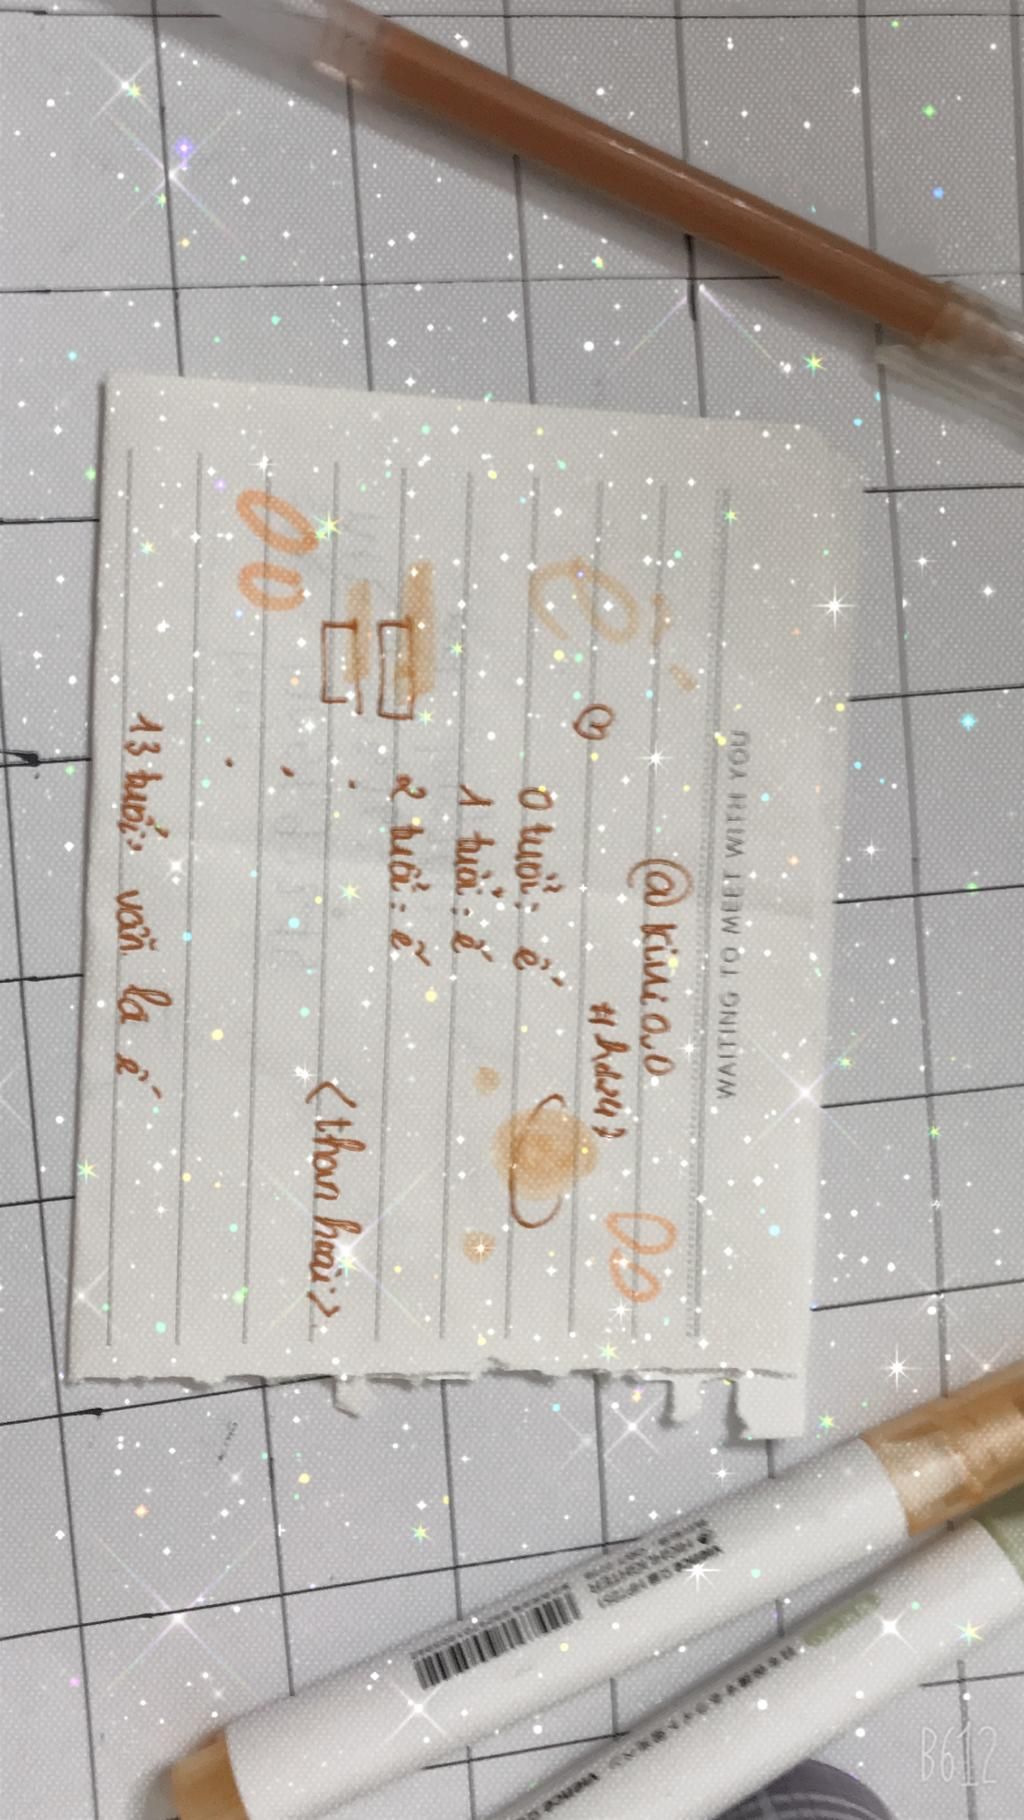 WAITING TO MEET WITH YOU
@kiwi a.o
0 tuổi: ế
1 tuổi: ế
2 tuổi: ế
<than hoài>
13 tuổi: vẫn là ế
HIGHLIGHTER
B612